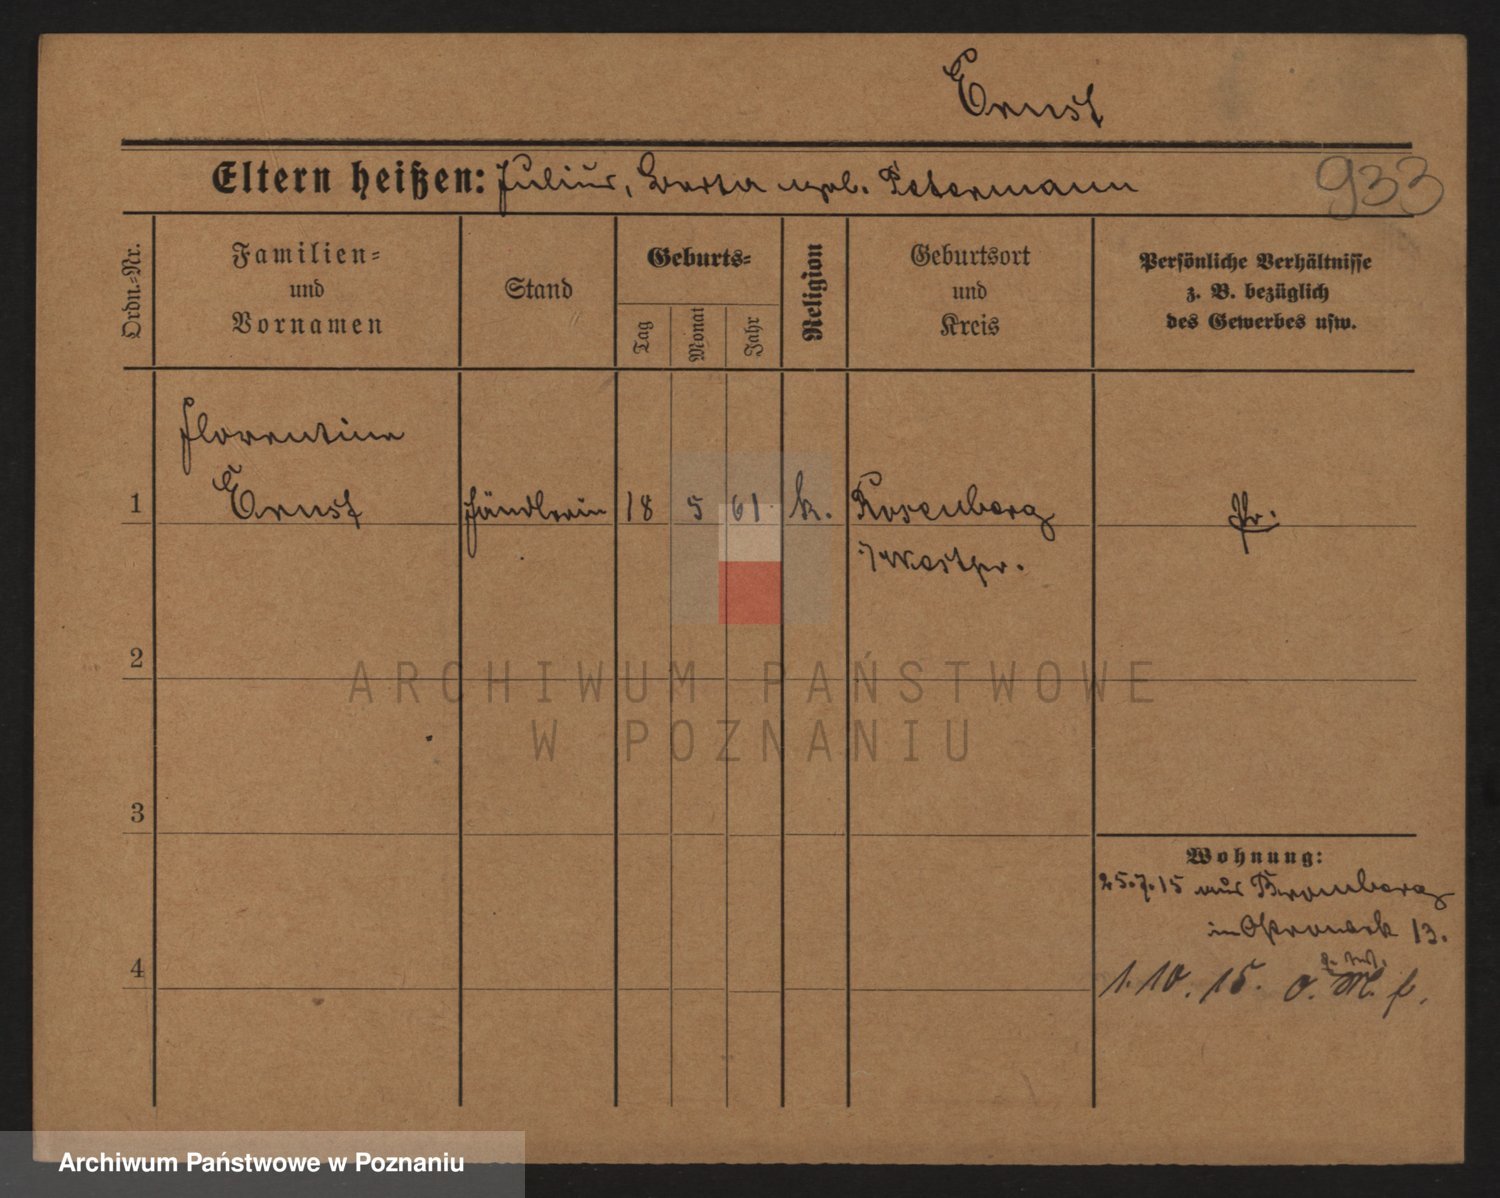 Ernst
Eltern heißen: Julius, Berta geb. Petermann
933
Ordn.=Nr.
Familien=
und
Vornamen
Stand
Geburts=
Tag
Monat
Jahr
Religion
Geburtsort
und
Kreis
Persönliche Verhältnisse
z. B. bezüglich
des Gewerbes usw.
Florentine
1 Ernst Händlerin 18 5 61 k. Rosenberg Pr.
i/Westpr.
2
ARCHIWUM PAŃSTWOWE
W POZNANIU
3
Wohnung:
25.7.15 aus Bromberg
13.
4
1.10.15. o.
Archiwum Państwowe w Poznaniu